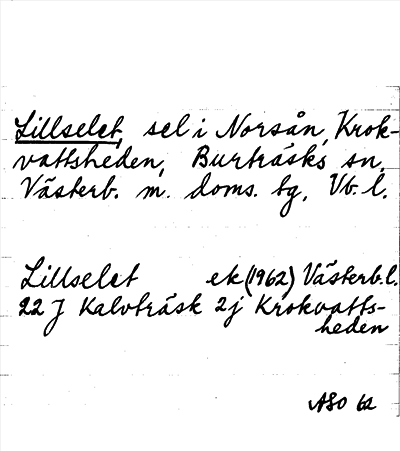 Lillselet, sel i Norsån, Krok-
vattsheden, Burträsks sn,
Västerb. m. doms. tg, Vb. l.
Lillselet ek (1962) Västerb. l.
22 J Kalvträsk 2j Krokvatts-
heden
ASO 62